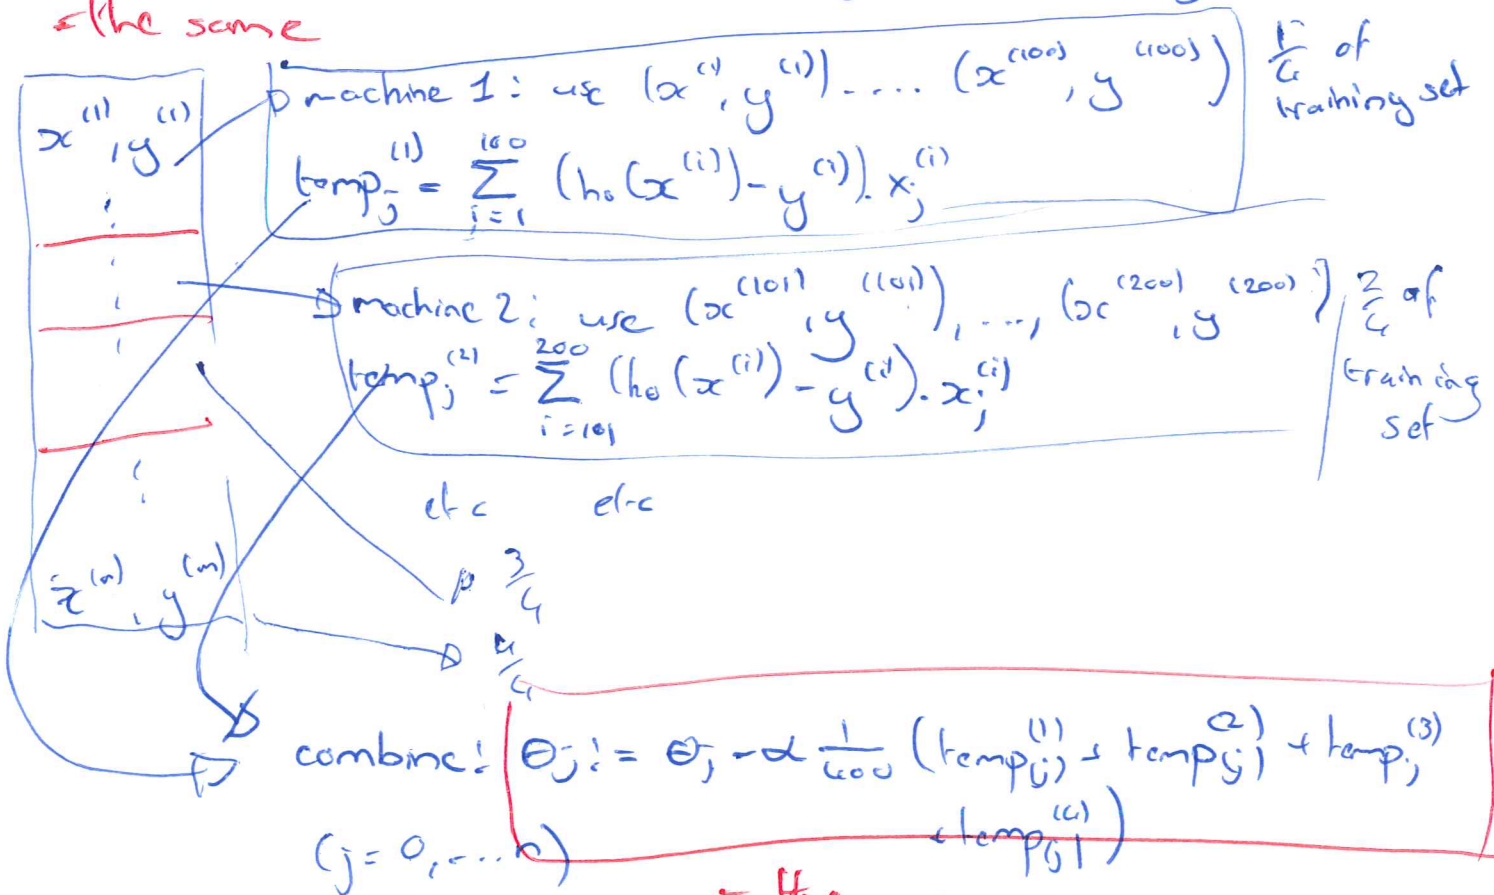 the same
machine 1: use (x^(1), y^(1)) .... (x^(100), y^(100))
1/4 of
training set
x^(1), y^(1)
temp_j^(1) = Σ_{i=1}^{100} (h_θ(x^(i)) - y^(i)) . x_j^(i)
machine 2: use (x^(101), y^(101)), ...., (x^(200), y^(200))
2/4 of
training
set
temp_j^(2) = Σ_{i=101}^{200} (h_θ(x^(i)) - y^(i)) . x_j^(i)
etc etc
x^(m), y^(m)
3/4
4/4
combine: θ_j := θ_j - α 1/400 (temp_j^(1) + temp_j^(2) + temp_j^(3)
+ temp_j^(4))
(j = 0, .... n)